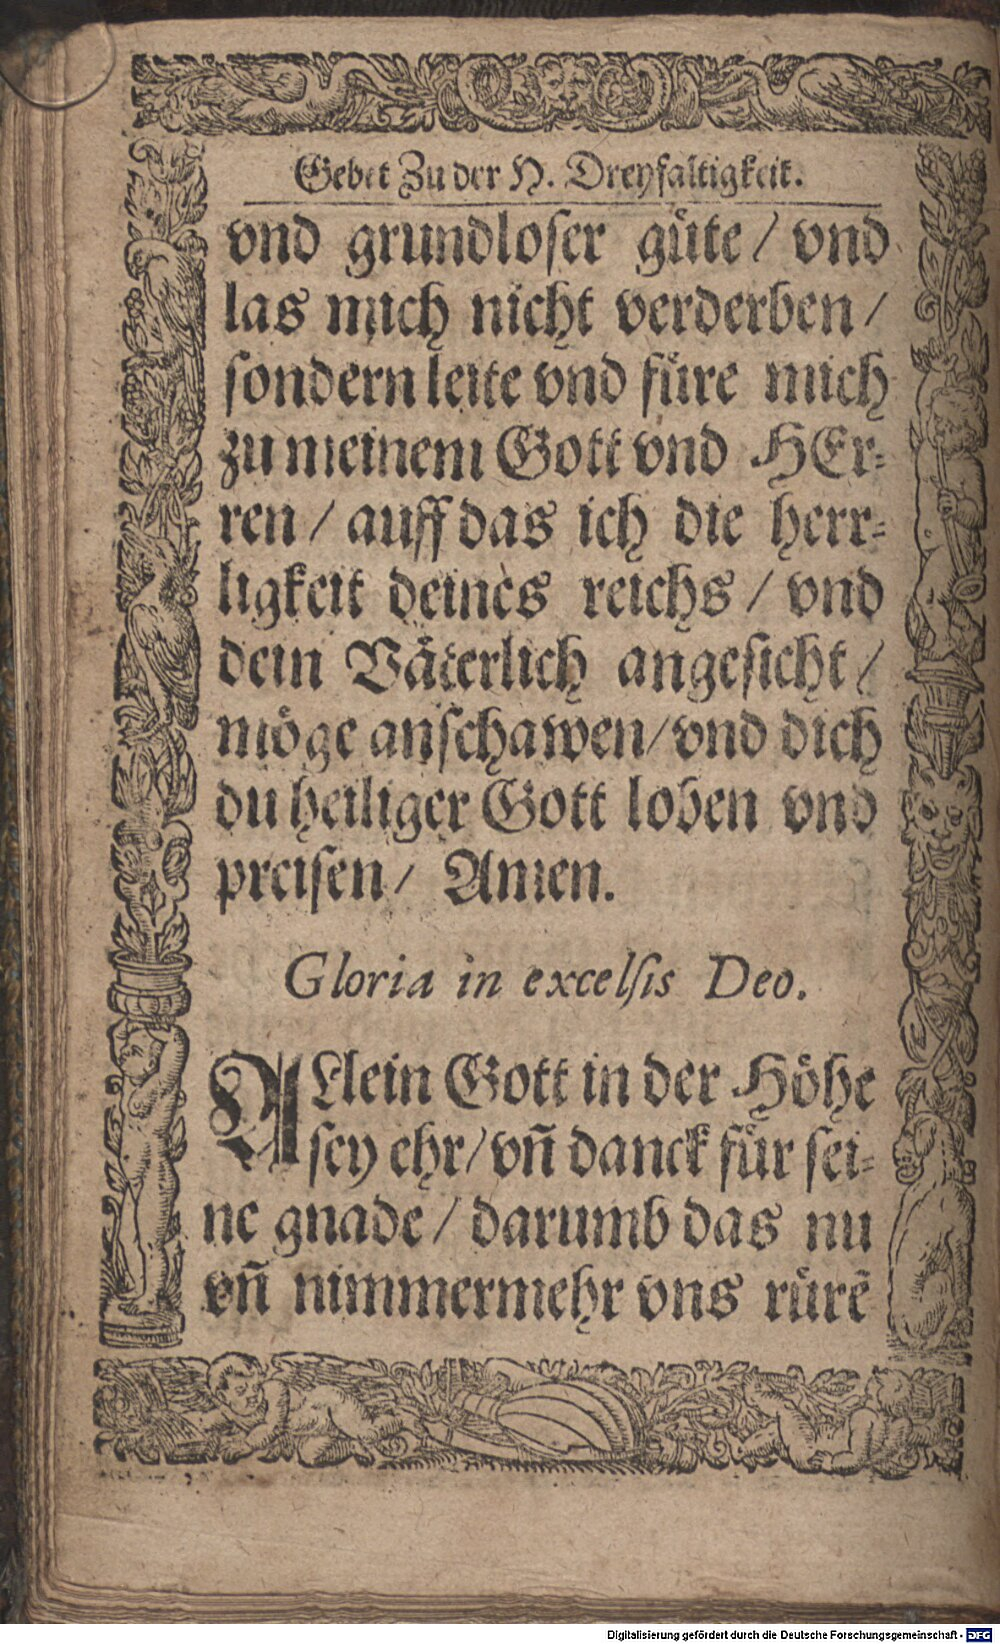 Gebet Zu der H. Dreyfaltigkeit.
vnd grundloser gůte / vnd
las mich nicht verderben /
sondern leite vnd fůre mich
zu meinem Gott vnd HEr-
ren / auff das ich die herr-
ligkeit deines reichs / vnd
dein Våterlich angesicht /
mőge anschawen / vnd dich
du heiliger Gott loben vnd
preisen / Amen.
Gloria in excelsis Deo.
ALlein Gott in der Höhe
sey ehr / vñ danck fůr sei-
ne gnade / darumb das nu
vñ nimmermehr vns růrẽ
Digitalisierung gefördert durch die Deutsche Forschungsgemeinschaft - DFG